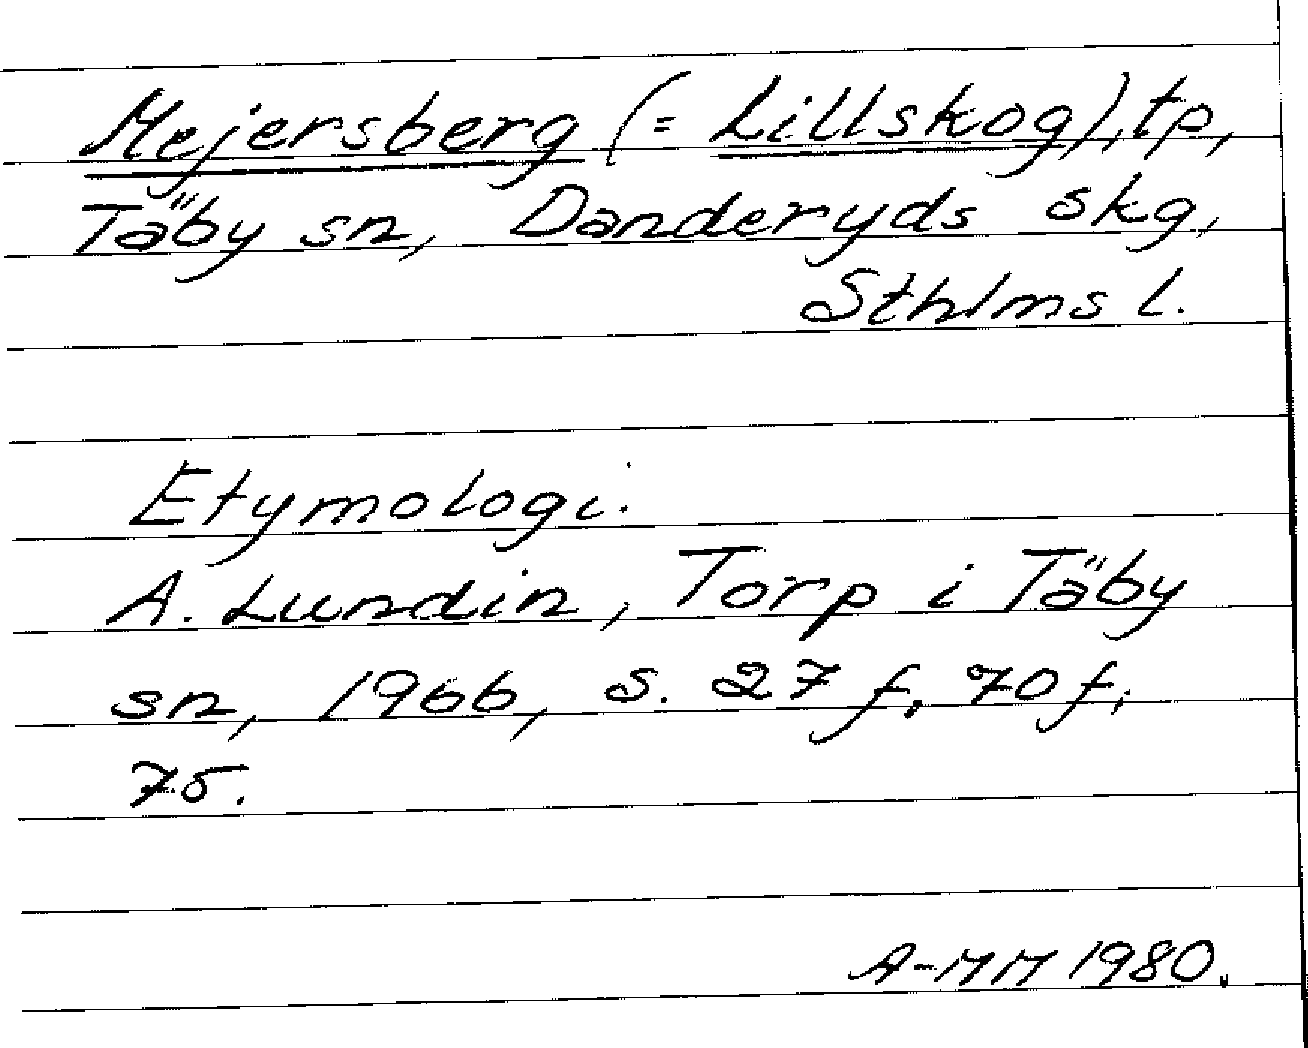 Mejersberg (= Lillskog), tp,
Täby sn, Danderyds skg,
Sthlms l.
Etymologi.
A. Lundin, Torp i Täby
sn, 1966, s. 27 f, 70 f,
75.
A-MM 1980.